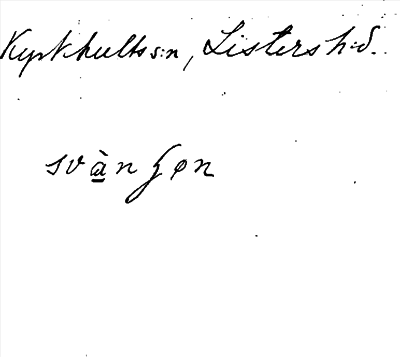 Kyrkhults s:n, Listers h:d.
svàngøn